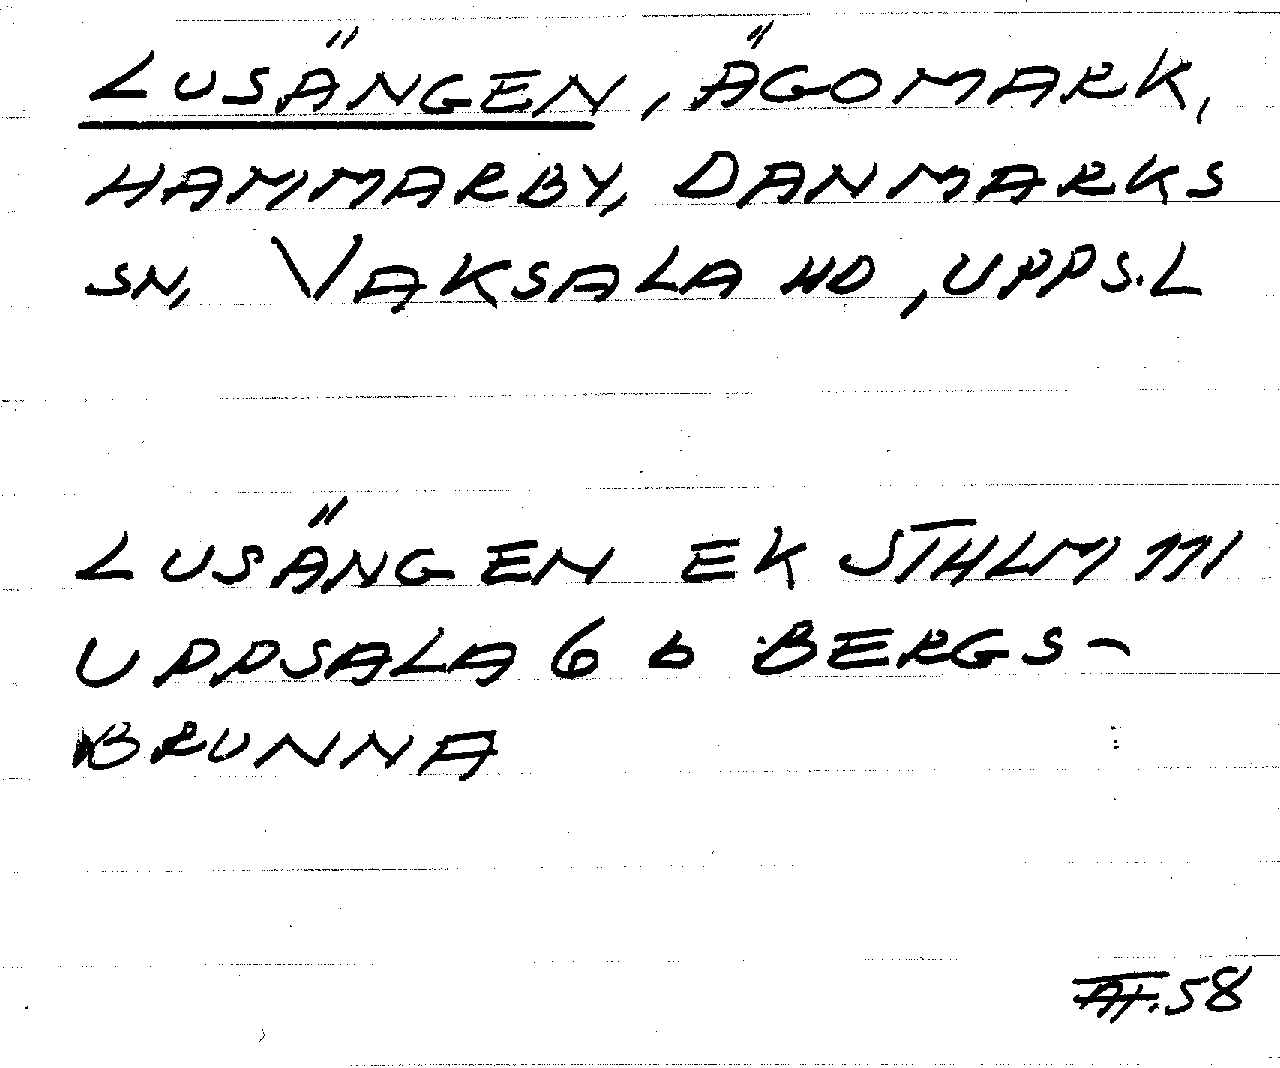 LUSÄNGEN, ÄGOMARK,
HAMMARBY, DANMARKS
SN, VAKSALA HD, UPPS.L
LUSÄNGEN EK STHLM 111
UPPSALA 6 b BERGS-
BRUNNA
58